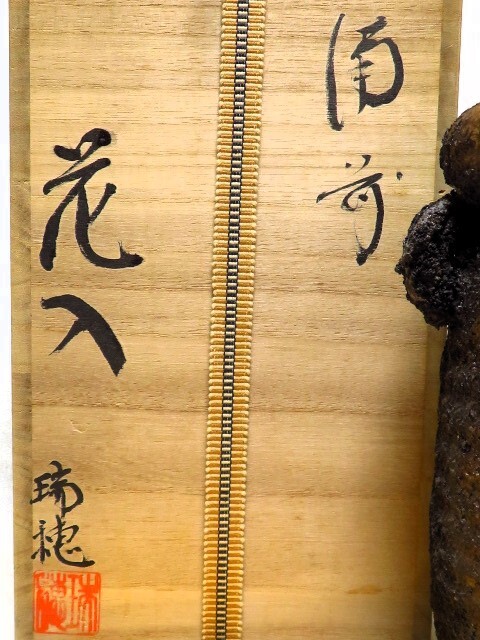 備前
花入
瑞穂